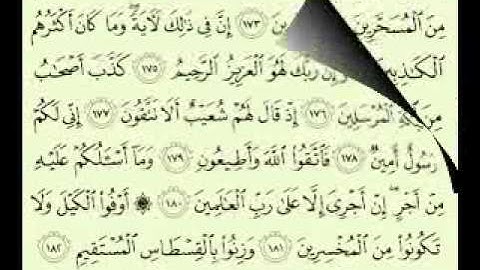 مِنَ ٱلْمُسَحَّرِينَ ١٧٣ إِنَّ فِى ذَٰلِكَ لَءَايَةً ۖ وَمَا كَانَ أَكْثَرُهُم
ٱلْكَـٰذِبِينَ رَبَّكَ لَهُوَ ٱلْعَزِيزُ ٱلرَّحِيمُ ١٧٥ كَذَّبَ أَصْحَـٰبُ
ٱلْمُرْسَلِينَ ١٧٦ إِذْ قَالَ لَهُمْ شُعَيْبٌ أَلَا تَتَّقُونَ ١٧٧ إِنِّى لَكُمْ
رَسُولٌ أَمِينٌ ١٧٨ فَٱتَّقُوا۟ ٱللَّهَ وَأَطِيعُونِ ١٧٩ وَمَآ أَسْـَٔلُكُمْ عَلَيْهِ
مِنْ أَجْرٍ ۖ إِنْ أَجْرِىَ إِلَّا عَلَىٰ رَبِّ ٱلْعَـٰلَمِينَ ١٨٠ ۞ أَوْفُوا۟ ٱلْكَيْلَ وَلَا
تَكُونُوا۟ مِنَ ٱلْمُخْسِرِينَ ١٨١ وَزِنُوا۟ بِٱلْقِسْطَاسِ ٱلْمُسْتَقِيمِ ١٨٢